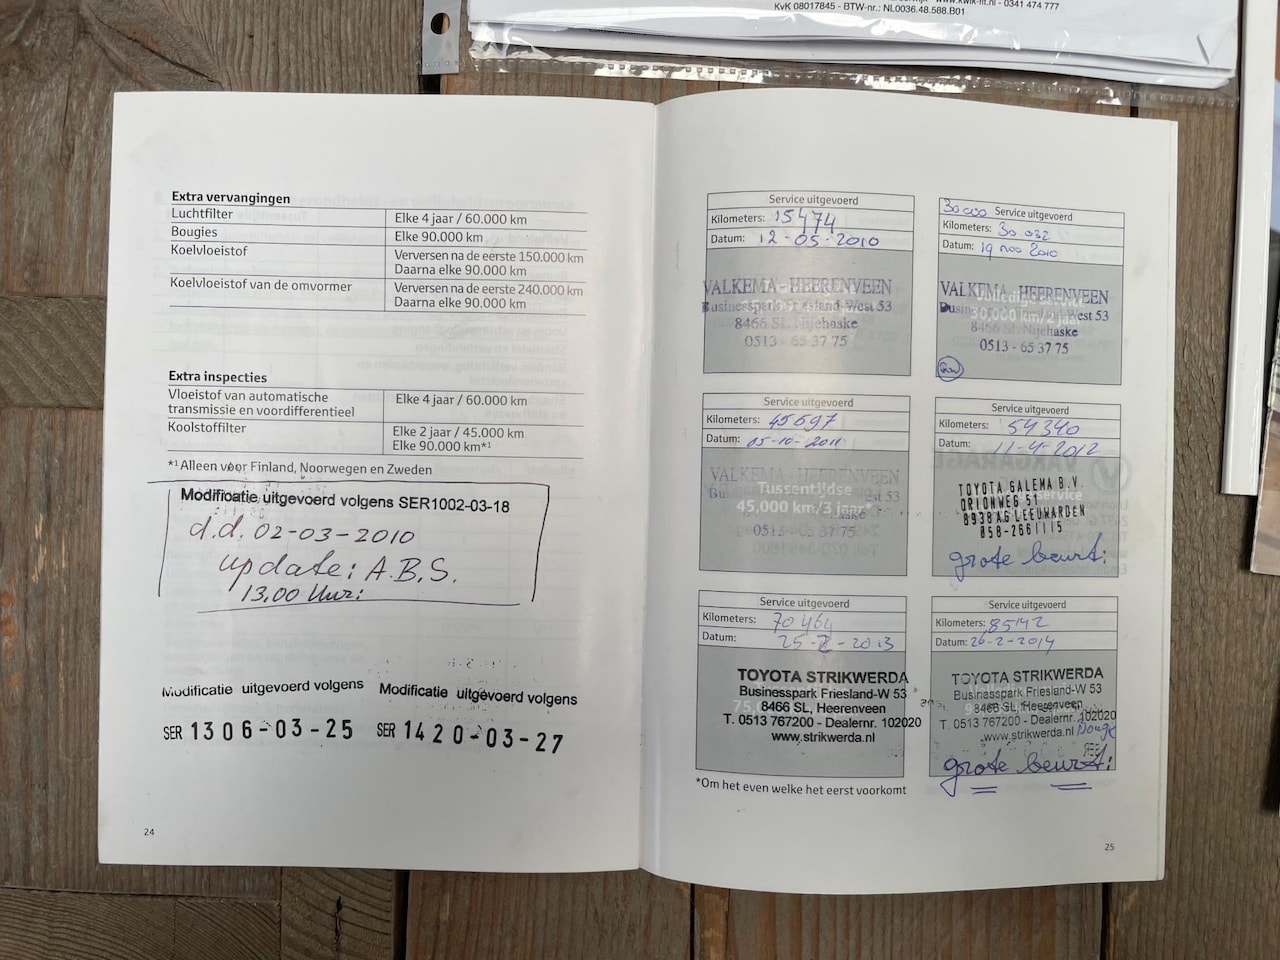 KvK 08017845 - BTW-nr.: NL0036.48.588.B01
Extra vervangingen
Luchtfilter Elke 4 jaar / 60.000 km
Bougies Elke 90.000 km
Koelvloeistof Verversen na de eerste 150.000 km
Daarna elke 90.000 km
Koelvloeistof van de omvormer Verversen na de eerste 240.000 km
Daarna elke 90.000 km
Extra inspecties
Vloeistof van automatische
transmissie en voordifferentieel Elke 4 jaar / 60.000 km
Koolstoffilter Elke 2 jaar / 45.000 km
Elke 90.000 km*1
*1 Alleen voor Finland, Noorwegen en Zweden
Modificatie uitgevoerd volgens SER1002-03-18
d.d. 02-03-2010
update: A.B.S.
13.00 Uur:
Modificatie uitgevoerd volgens
SER 1306-03-25
Modificatie uitgevoerd volgens
SER 1420-03-27
24
Service uitgevoerd
Kilometers: 15474
Datum: 12-05-2010
VALKEMA - HEERENVEEN
Businesspark Friesland-West 53
8466 SL Nijehaske
0513 - 65 37 75
30000 Service uitgevoerd
Kilometers: 30 032
Datum: 19 nov 2010
VALKEMA - HEERENVEEN
Volledige service
30,000 km/2 jaar
West 53
8466 SL Nijehaske
0513 - 65 37 75
Service uitgevoerd
Kilometers: 45697
Datum: 05-10-2011
VALKEMA - HEERENVEEN
Tussentijdse
45,000 km/3 jaar*
0513 - 65 37 75
Service uitgevoerd
Kilometers: 54340
Datum: 11-4-2012
TOYOTA GALEMA B.V.
ORIONWEG 51
8938 AG LEEUWARDEN
058-2661115
service
grote beurt:
Service uitgevoerd
Kilometers: 70 464
Datum: 25-2-2013
TOYOTA STRIKWERDA
Businesspark Friesland-W 53
8466 SL, Heerenveen
T. 0513 767200 - Dealernr. 102020
www.strikwerda.nl
Service uitgevoerd
Kilometers: 85142
Datum: 26-2-2014
TOYOTA STRIKWERDA
Businesspark Friesland-W 53
8466 SL, Heerenveen
T. 0513 767200 - Dealernr. 102020
www.strikwerda.nl
grote beurt:
*Om het even welke het eerst voorkomt
25